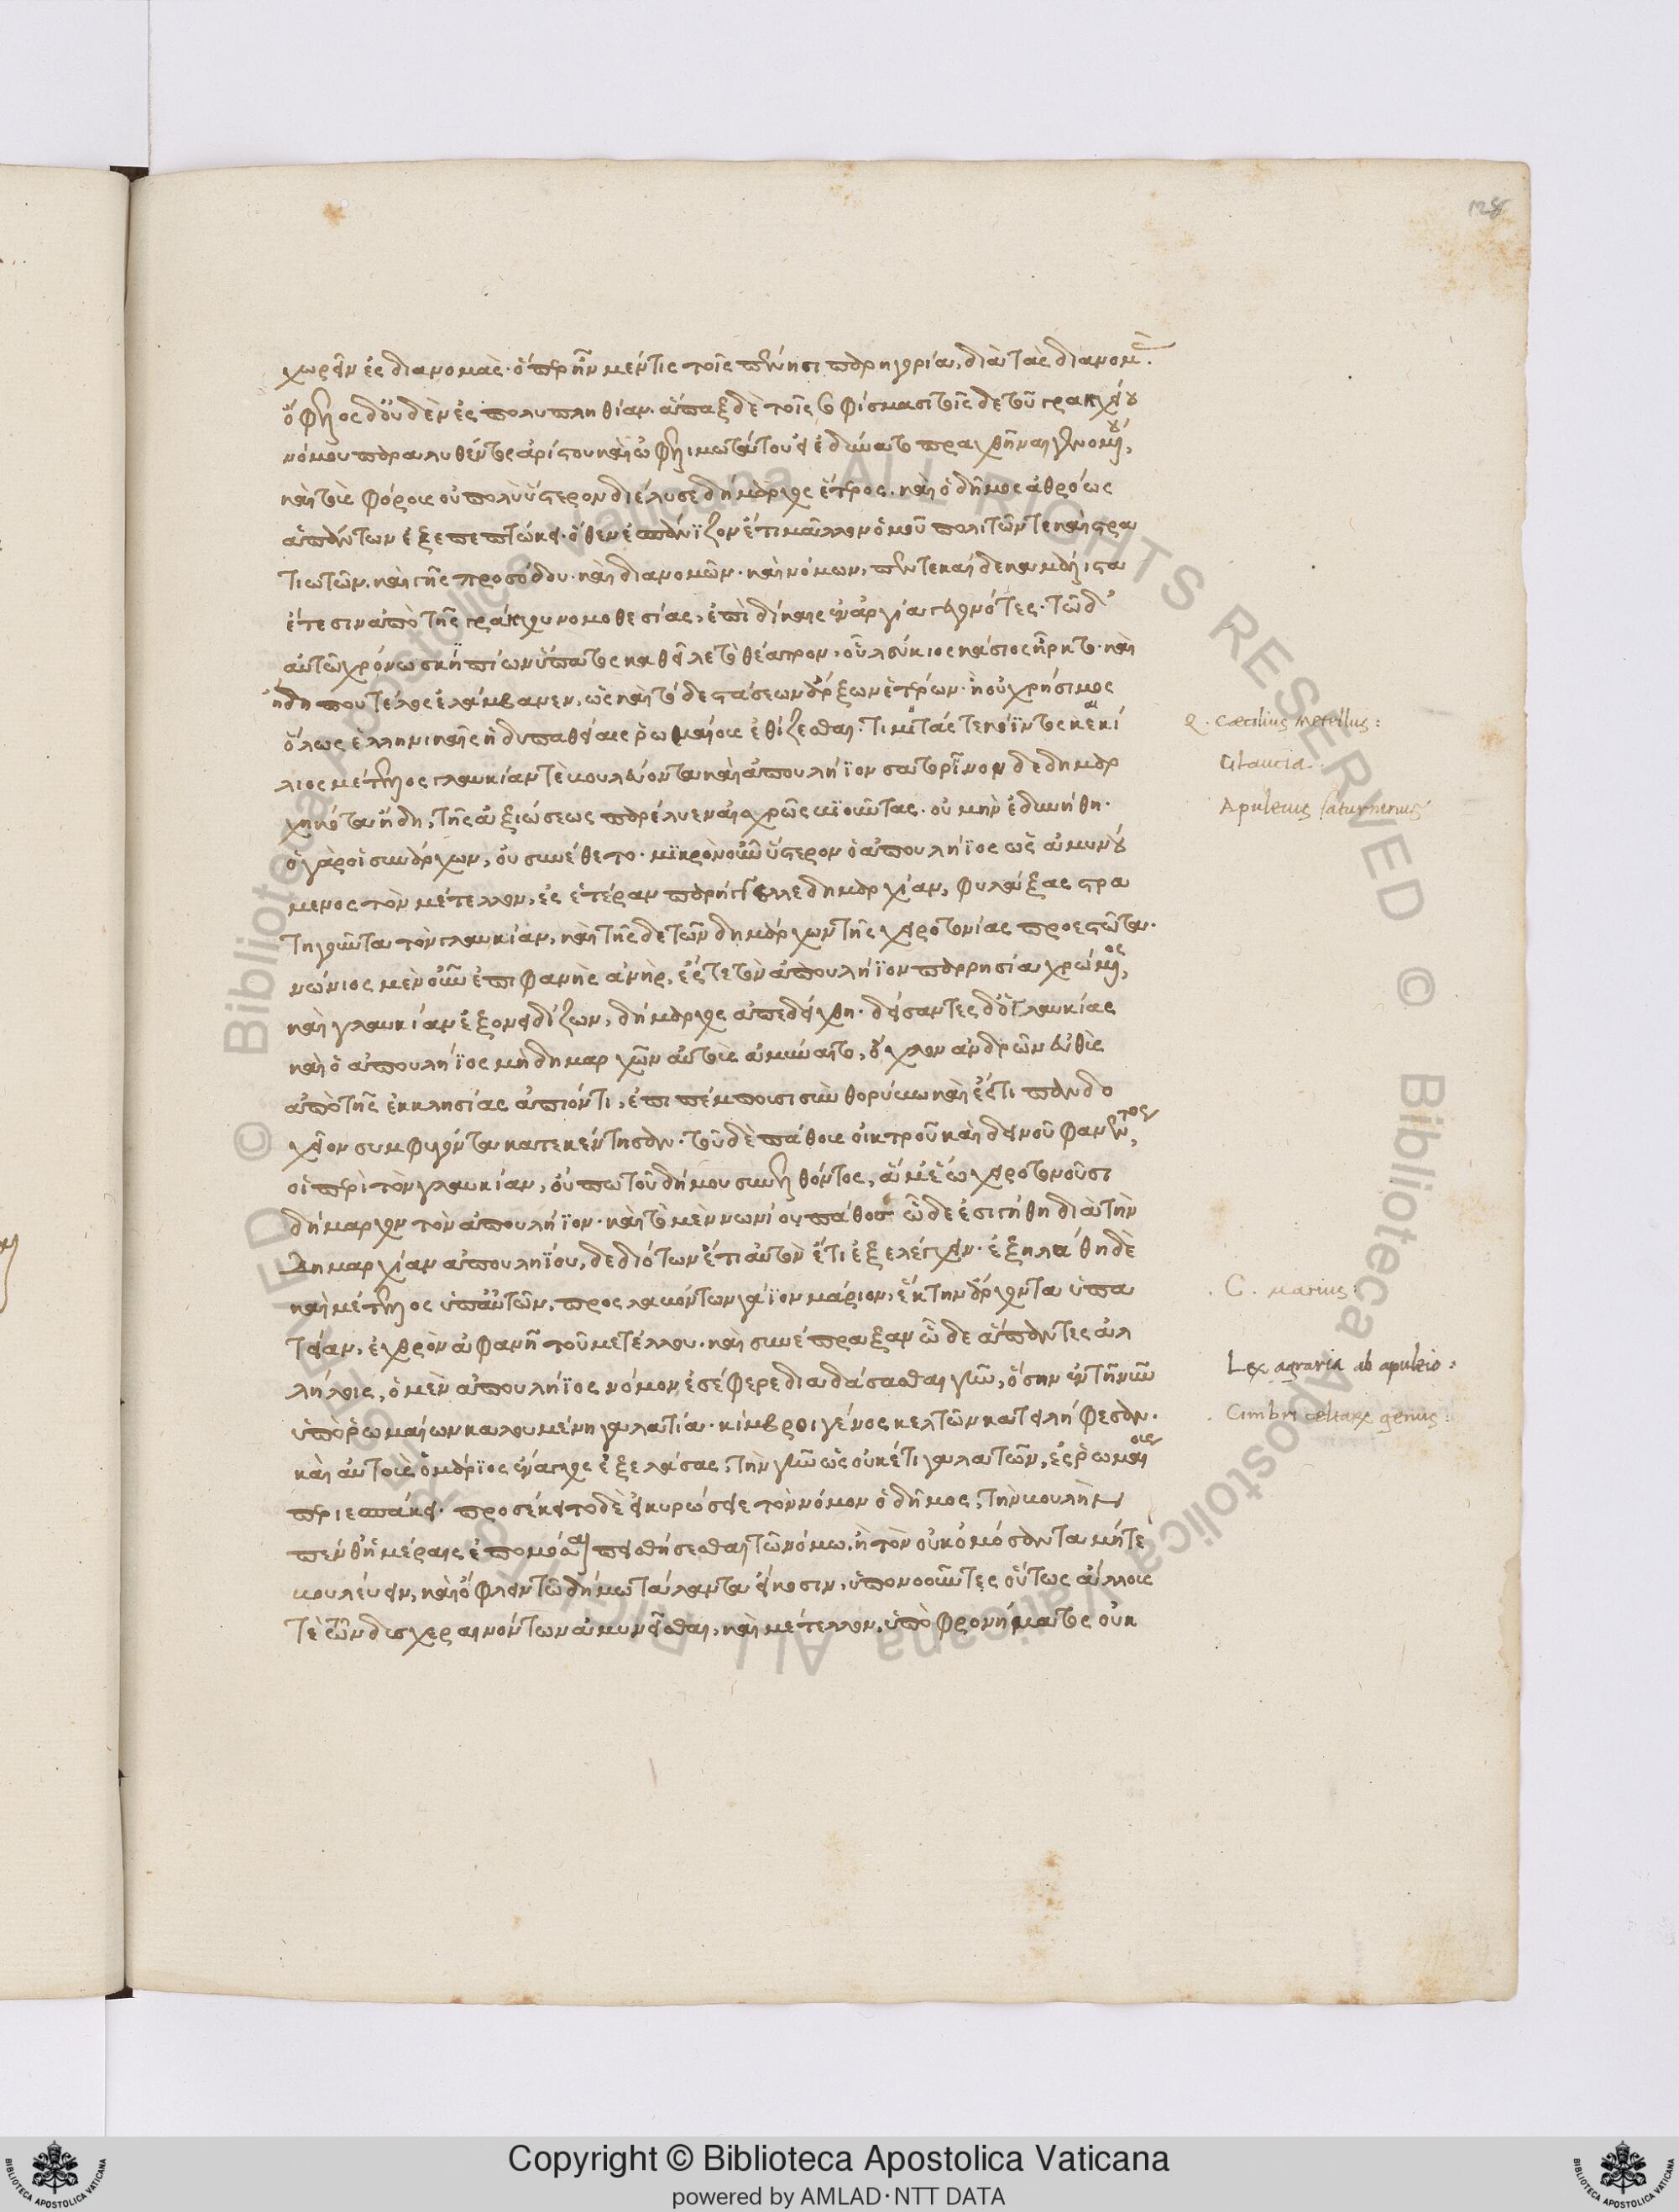 128
χωρεῖν ἐς διανομάς. ὅπερ ἦν μέν τις τοῖς πένησι παρηγορία, διὰ τὰς διανομάς.
ὄφελος δ' οὐδὲν ἐς πολυπληθίαν. ἅπαξ δὲ τοῖς σοφίσμασι τοῖσδε τοῦ γρακχείου
νόμου παραλυθέντος ἀρίστου καὶ ὠφελιμωτάτου εἰ ἐδύνατο πραχθῆναι γενομένου,
καὶ τοὺς φόρους οὐ πολὺ ὕστερον διέλυσε δήμαρχος ἕτερος. καὶ ὁ δῆμος ἀθρόως
ἁπάντων ἐξεπεπτώκει. ὅθεν ἐσπάνιζον ἔτι μᾶλλον ὁμοῦ πολιτῶν τε καὶ στρα
τιωτῶν. καὶ γῆς προσόδου. καὶ διανομῶν. καὶ νόμων, πεντεκαίδεκα μάλιστα
ἔτεσιν ἀπὸ τῆς γράκχου νομοθεσίας, ἐπὶ δίκαις ἐν ἀργία γεγονότες. τῶ δ'
αὐτῶ χρόνω σκηπίων ὕπατος καθεῖλε τὸ θέατρον. οὗ λεύκιος κάσιος ἦρκτο. καὶ
ἤδη που τέλος ἐλάμβανεν, ὡς καὶ τόδε στάσεων ἄρξων ἑτέρων. ἢ οὐ χρήσιμος
ὅλως ἑλληνικαῖς ἡδυπαθείαις ῥωμαίους ἐθίζεσθαι. τιμητὰς τε κόϊντος κεκί
λιος μέτελλος γλαυκίαν τὲ βουλεύοντα καὶ ἀπουληΐον σατορνῖνον δεδημαρ
χηκότα ἤδη, τῆς ἀξιώσεως παρέλυεν αἰσχρῶς βιοῦντας. οὐ μὴν ἐδυνήθη.
ὁ γάρ οἱ συνάρχων, οὐ συνέθετο. μικρὸν οὖν ὕστερον ὁ ἀπουλήϊος ὡς ἀμυνού
μενος τὸν μέτελλον, ἐς ἑτέραν παρήγγελλε δημαρχίαν, φυλάξας στρα
τηγοῦντα τὸν γλαυκίαν, καὶ τῆσδε τῶν δημάρχων τῆς χειροτονίας προεστῶτα.
νώνιος μὲν οὖν ἐπιφανὴς ἀνὴρ, ἔς τε τὸν ἀπουλήϊον παρρησία χρώμενος,
καὶ γλαυκίαν ἐξονειδίζων, δήμαρχος ἀπεδείχθη. δείσαντες δ' ὁ γλαυκίας
καὶ ὁ ἀπουλήϊος μὴ δημαρχῶν αὐτοὺς ἀμύναιτο, ὄχλον ἀνδρῶν εὐθὺς
ἀπὸ τῆς ἐκκλησίας ἀπιόντι, ἐπιπέμπουσι σὺν θορύβω καὶ ἔς τι πανδο
χεῖον συμφυγόντα κατεκέντησαν. τοῦ δὲ πάθους οἰκτροῦ καὶ δεινοῦ φανέντος,
οἱ περὶ τὸν γλαυκίαν, οὔπω τοῦ δήμου συνελθόντος, ἅμ' ἕω χειροτονοῦσι
δήμαρχον τὸν ἀπουλήϊον. καὶ τὸ μὲν νωνίου πάθος ὧδε ἐσιγήθη διὰ τὴν
δημαρχίαν ἀπουληΐου, δεδιότων ἔτι αὐτὸν ἔτι ἐξελέγχειν. ἐξηλάθη δὲ
καὶ μέτελλος ὑπ' αὐτῶν, προσλαβόντων γάϊον μάριον, ἕκτην ἄρχοντα ὑπα
τείαν, ἐχθρὸν ἀφανῆ τοῦ μετέλλου. καὶ συνέπραξαν ὧδε ἅπαντες ἀλ
λήλοις, ὁ μὲν ἀπουλήϊος νόμον ἐσέφερε διαδάσασθαι γῆν, ὅσην ἐν τῆ νῦν
ὑπὸ ῥωμαίων καλουμένη γαλατία. κίμβροι γένος κελτῶν κατειλήφεσαν.
καὶ αὐτοὺς ὁ μάριος ἔναγχος ἐξελάσας, τὴν γῆν ὡς οὐκέτι γαλατῶν, ἐς ῥωμαίους
περιεσπάκει. προσέκειτο δὲ εἰ κυρώσειε τὸν νόμον ὁ δῆμος, τὴν βουλὴν
πένθ' ἡμέραις ἐπομόσαι πεισθήσεσθαι τῶ νόμω. ἢ τὸν οὐκ ὀμόσαντα μήτε
βουλεύειν, καὶ ὀφλεῖν τῶ δήμω τάλαντα εἴκοσιν, ὑπονοοῦντες οὕτως ἄλλους
τὲ τῶν δυσχεραινόντων ἀμυνεῖσθαι, καὶ μέτελλον, ὑπὸ φρονήματος οὐκ
Q. Cæcilius Metellus:
Glaucia.
Apuleius saturninus
C. marius:
Lex agraria ab apuleio:
Cimbri celtarum genus:
© Biblioteca Apostolica Vaticana ALL RIGHTS RESERVED © Biblioteca Apostolica Vaticana ALL RIGHTS RESERVED
Copyright © Biblioteca Apostolica Vaticana
powered by AMLAD·NTT DATA
BIBLIOTECA APOSTOLICA VATICANA
BIBLIOTECA APOSTOLICA VATICANA